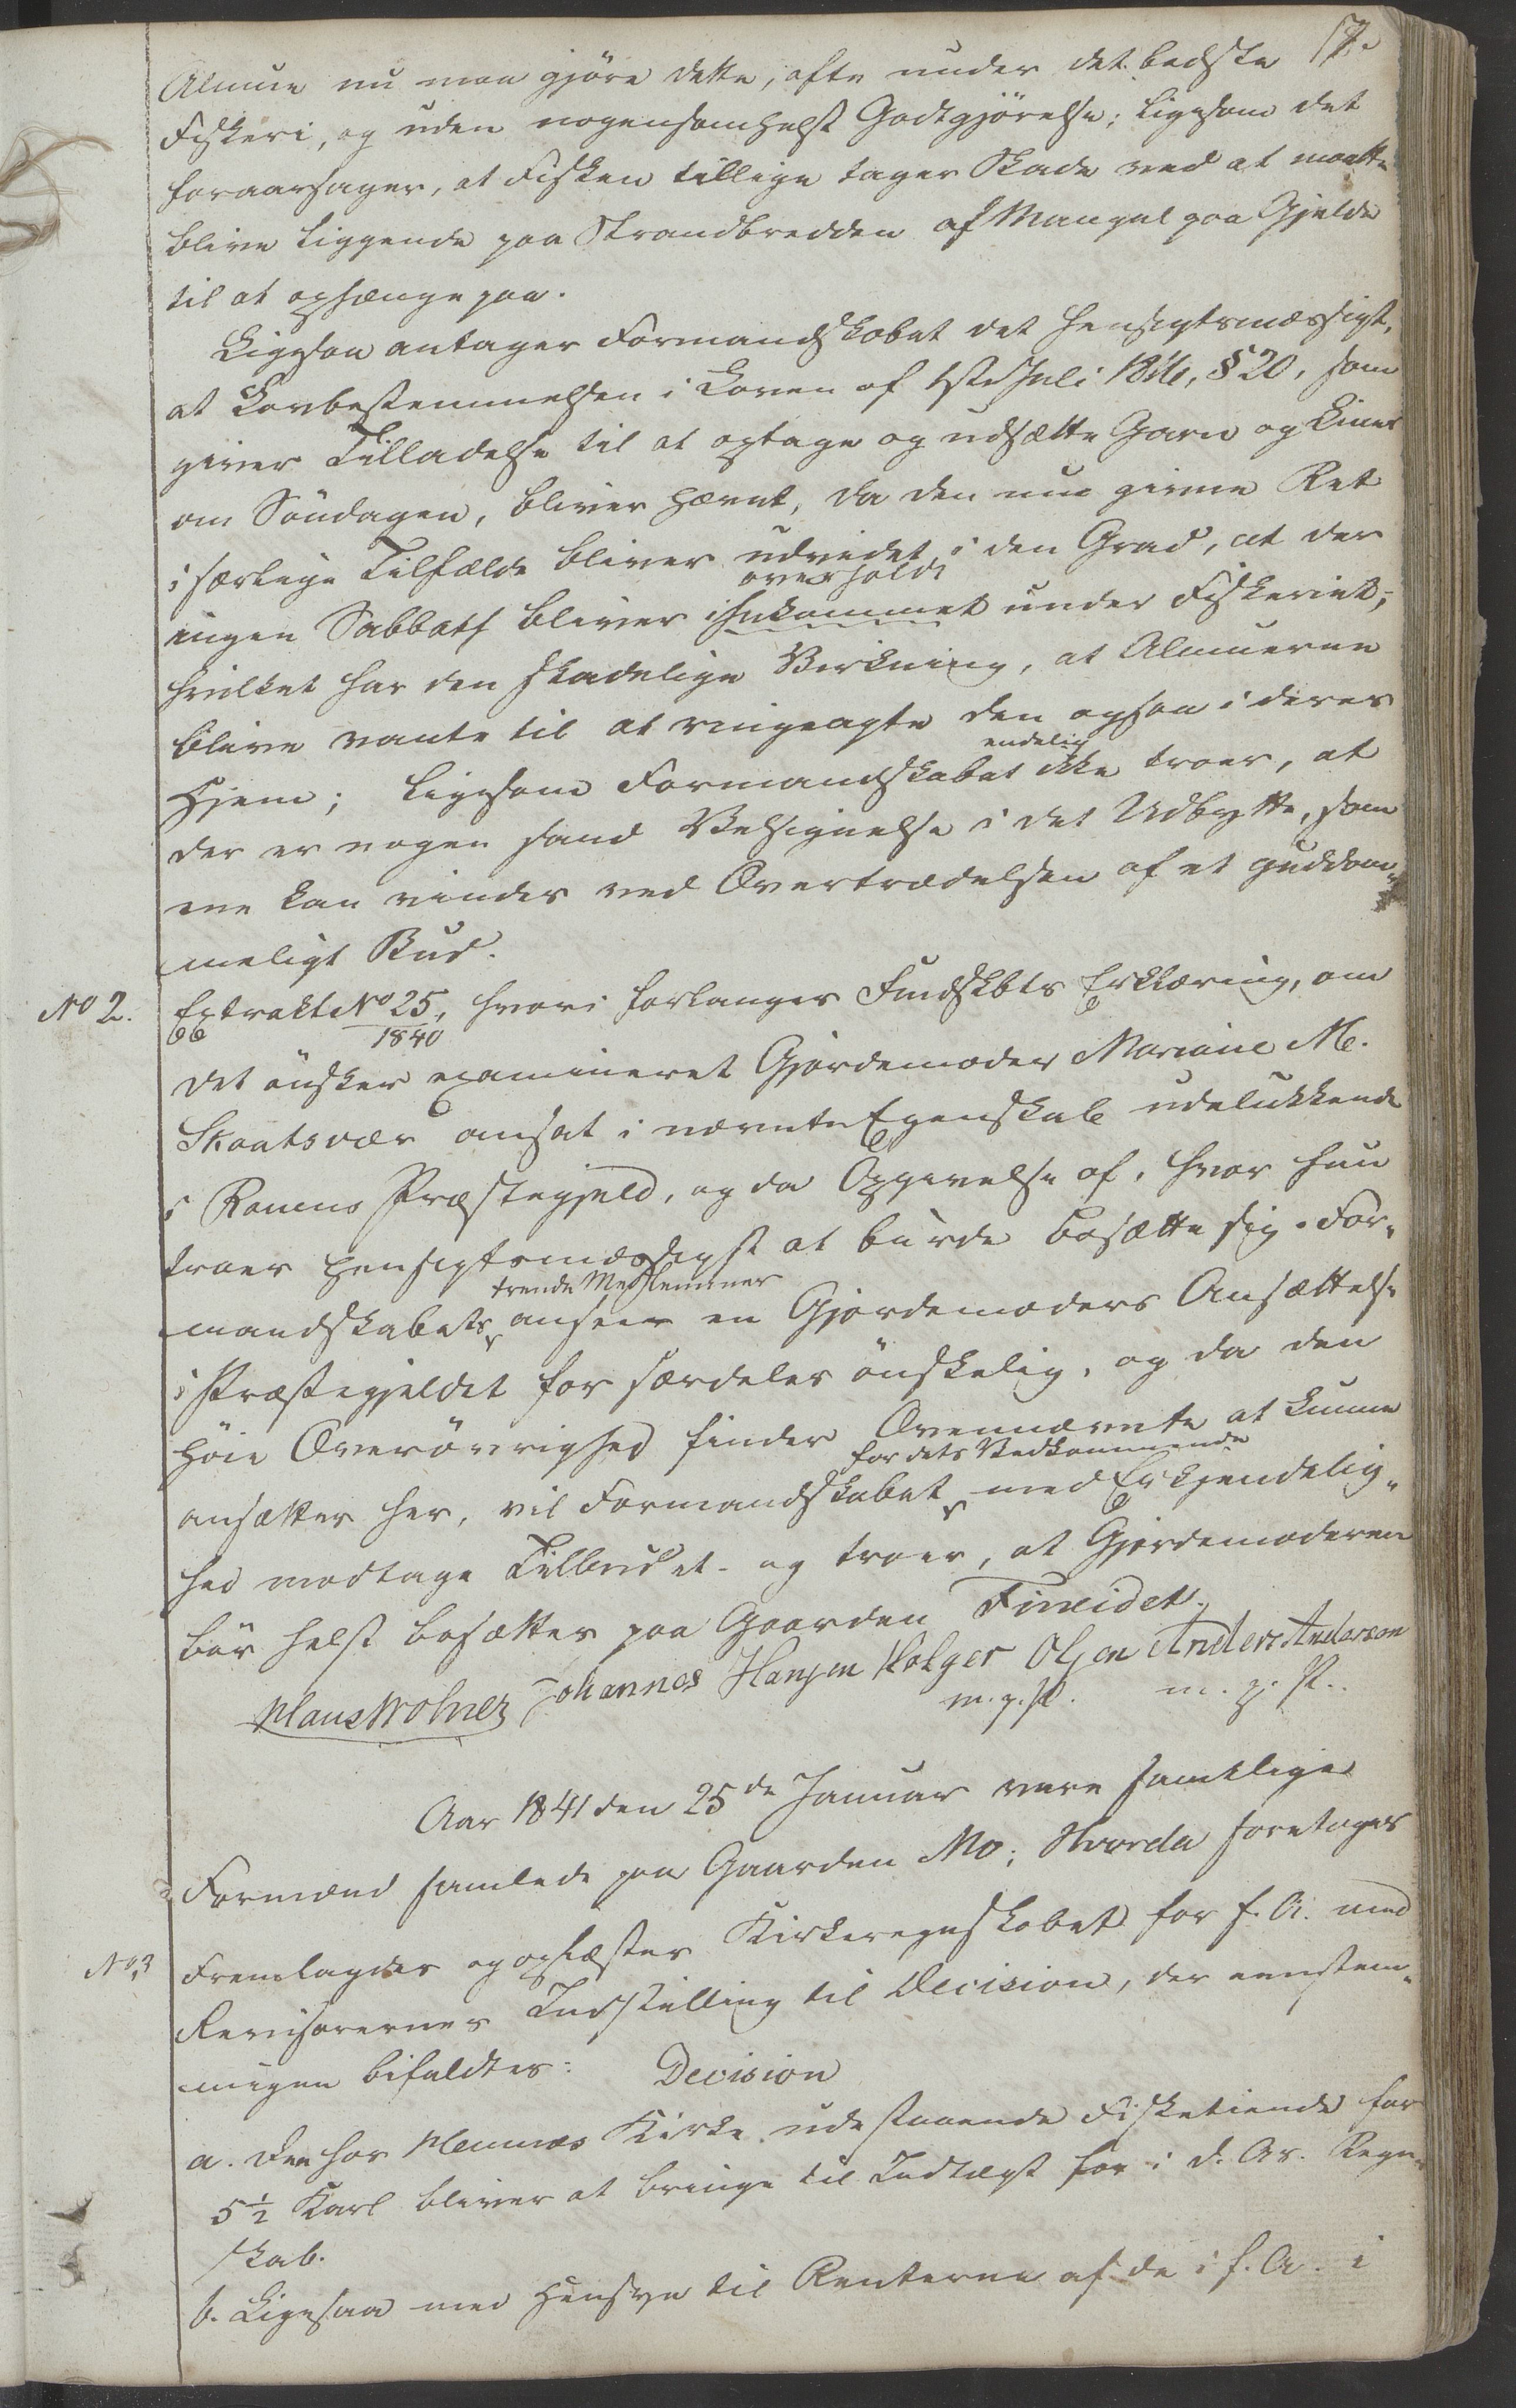 17.
Almue nu maa gjöre dette, ofte under det bedste
Fiskeri, og uden nogensomhelst Godtgjörelse; ligesom det
foraarsager, at Fisken tillige tager Skade ved at maatte
blive liggende paa Strandbredden af Mangel paa Gjelde
til at ophænge paa.
Ligesaa antager Formandskabet det hensigtsmæssigt,
at Lovbestemmelsen i Loven af 1ste Juli 1816, § 20, som
giver Tilladelse til at optage og udsætte Garn og Liner
om Söndagen, bliver hævet, da den nu givne Ret
i særlige Tilfælde bliver udvidet i den Grad, at der
overholdt
ingen Sabbath bliver ihukommet under Fiskeriet;
hvilket har den skadelige Virkning, at Almuerne
blive vante til at ringeagte den ogsaa i deres
endelig
Hjem; ligesom Formandskabet ikke troer, at
der er nogen sand Velsignelse i det Udbytte, som
ene kan vindes ved Overtrædelsen af et guddom-
meligt Bud.
No 2. Extrakt No 25, hvori forlanges Fmdskbts Erklæring, om
1840
det önsker examineret Gjordemoder Mariane M.
Skaatsvær ansat i nævnte Egenskab udelukkende
i Ranens Præstegjeld, og da Opgivelse af, hvor hun
troer hensigtsmæssigst at burde bosætte sig. For-
trende Medlemmer
mandskabets anseer en Gjordemoders Ansættelse
i Præstegjeldet for særdeles önskelig, og da den
höie Överövrighed finder Ovennævnte at kunne
for dets Vedkommende
ansættes her, vil Formandskabet med Erkjendelig-
hed modtage Tilbudet og troer, at Gjordemoderen
bör helst bosættes paa Gaarden Finneidet.
Klaus Wolner Johannes Hansen Holger Olsen Anders Anderson
m. p. P. m. p. P.
Aar 1841 den 25de Januar vare samtlige
Formænd samlede paa Gaarden Mo; Hvorda foretages
No 3 Fremlagdes og oplæstes Kirkeregnskabet for f. A. med
Revisorernes Indstilling til Decision, der eenstem-
migen bifaldtes: Decision
a. Den hos Hemnæs Kirke udestaaende Fisketiende for
5 1/2 Karl bliver at bringe til Indtægt for i d. Ar. Regn-
skab.
b. Ligesaa med Hensyn til Renterne af de i f. A. i